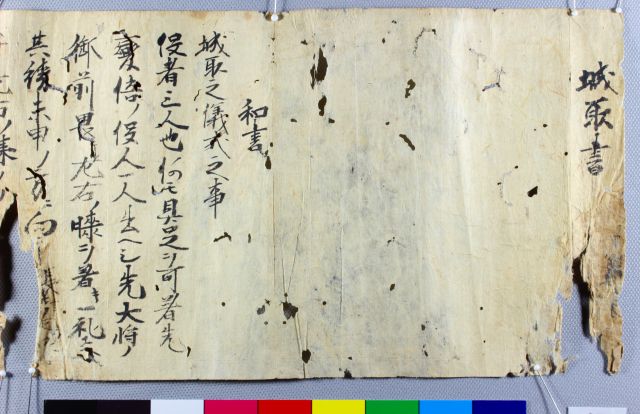 城取書
和書
城取之儀式之事
役者三人也何も具足ヲ可着先
役人一人出ヘシ先大将ノ
御前畏左右ノ膝ヲ着キ一礼
其後未申ノ方ニ向
左右ノ